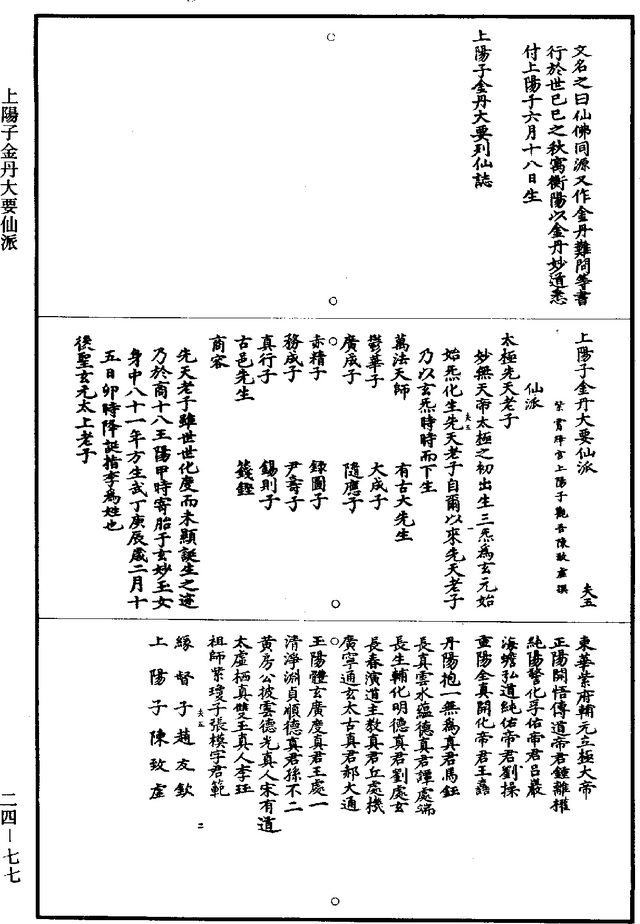 文名之曰仙佛同源又作金丹難問等書
行於世己巳之秋寓衡陽以金丹妙道悉
付上陽子六月十八日生
上陽子金丹大要列仙誌
上陽子金丹大要仙派
夫五
紫霄絳宮上陽子觀吾陳致虛撰
仙派
太極先天老子
妙無天帝太極之初出生三炁為玄元始
始炁化生先天老子自爾以來先天老子
夫五
一
乃以玄炁時時而下生
萬法天師
有古大先生
鬱華子
大成子
廣成子
隨應子
赤精子
錄圖子
務成子
尹壽子
真行子
錫則子
古邑先生
籛鏗
商容
先天老子雖世世化度而未顯誕生之迹
乃於商十八王陽甲時寄胎于玄妙玉女
身中八十一年方生武丁庚辰歲二月十
五日卯時降誕指李為姓也
後聖玄元太上老子
東華紫府輔元立極大帝
正陽開悟傳道帝君鍾離權
純陽警化孚佑帝君呂巖
海蟾弘道純佑帝君劉操
重陽全真開化帝君王嚞
丹陽抱一無為真君馬鈺
長真雲水蘊德真君譚處端
長生輔化明德真君劉處玄
長春演道主教真君丘處機
廣寧通玄太古真君郝大通
玉陽體玄廣度真君王處一
清淨淵貞順德真君孫不二
黃房公披雲德光真人宋有道
太虛栖真雙玉真人李珏
祖師紫瓊子張模字君範
夫五
二
緣督子趙友欽
上陽子陳致虛
上陽子金丹大要仙派
二四－七七